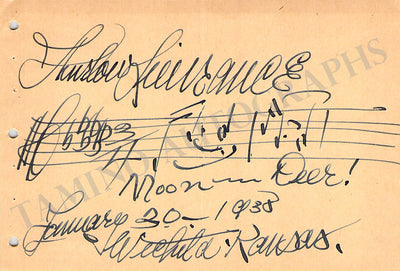 Thurlow Lieurance
Moon Deer!
January 20-1938
Wichita-Kansas.
TAMINO AUTOGRAPHS